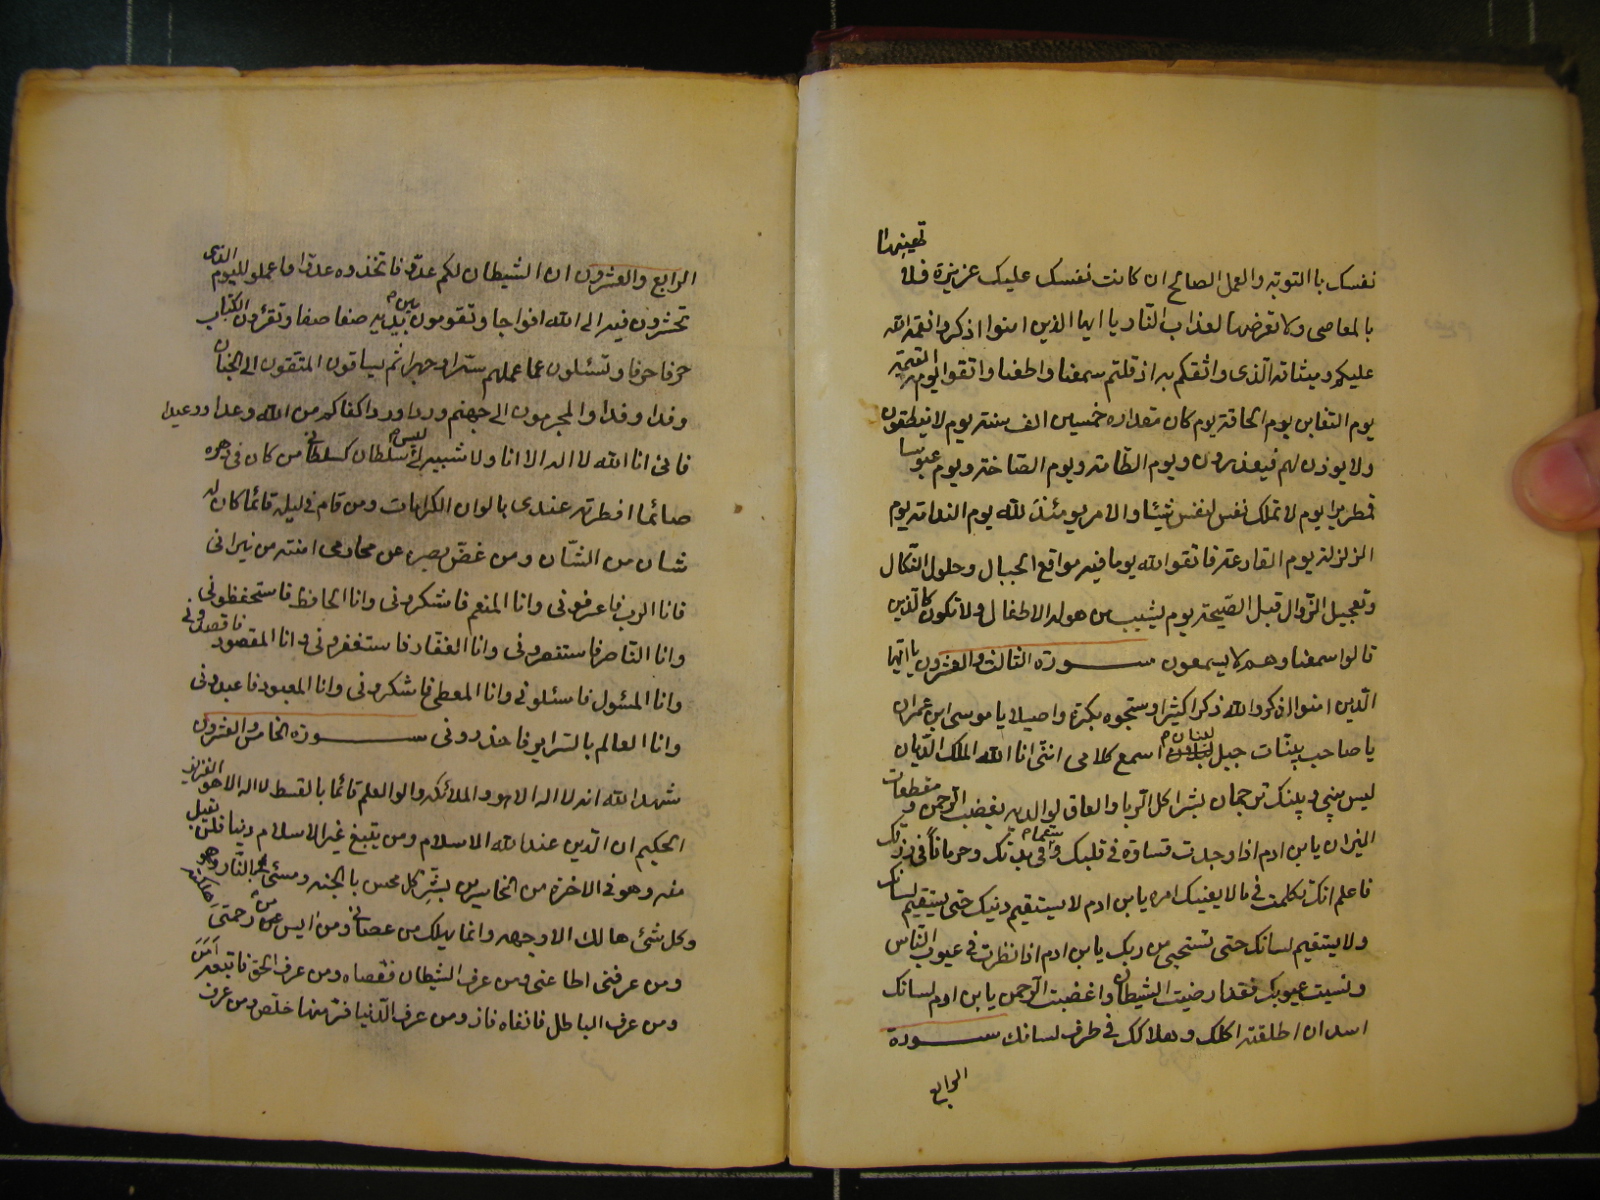 نفسك باالتوبة والعمل الصالح ان كانت نفسك عليك عزيزة فلا تهينها
بالمعاصى ولا تعرضها لعذاب النّار يا ايها الذين امنوا اذكروا نعمة الله
عليكم وميثاقه الّذى واثقكم به اذ قلتم سمعنا واطعنا واتقوا يوم القيمة
يوم التغابن يوم الحاقة يوم كان مقداره خمسين الف سنة يوم لا ينطقون
ولا يوذن لهم فيعذرون ويوم الطّامة ويوم الصّاخة ويوم عبوسا
قمطريرا يوم لا تملك نفس لنفس شيئا والامر يومئذ لله يوم الندامة يوم
الزلزلة يوم القارعة فاتقوا الله يوما فيه مواقع الجبال وحلول النّكال
وتعجيل الزّوال قبل الصّيحة يوم يشيب من هوله الاطفال ولا تكونوا كالّذين
قالوا سمعنا وهم لا يسمعون سورة الثالث والعشرون يا ايّها
الّذين امنوا اذكروا الله ذكرا كثيرا وسبحوه بكرة واصيلا يا موسى ابن عمران
يا صاحب جبل لبنان اسمع كلامى انّنى انا الله الملك الدّيان
ليس بينى وبينك ترجمان بشر اكل الرّبا والعاق لوالديه بغضب الرّحمن ومقطعات
النيران يابن ادم اذا وجدت قساوة فى قلبك وسقما فى بدنك وحرمانا فى رزقك
فاعلم انك تكلمت فى ما لا يعنيك يابن ادم لا يستقيم دينك حتى يستقيم لسانك
ولا يستقيم لسانك حتى تستحيى من ربك يابن ادم اذا نظرت فى عيوب النّاس
ونسيت عيوبك فقد ارضيت الشيطان واغضبت الرّحمن يابن ادم لسانك
اسد ان اطلقته اكلك وهلاكك فى طرف لسانك سورة
الرابع
الرابع والعشرون ان الشيطان لكم عدوّ فاتخذوه عدوّا فاعملوا لليوم الذى
تحشرون فيه الى الله افواجا وتقومون بين يديه صفا صفا وتقرؤن الكتاب
حرفا حرفا وتسئلون عما عملتم سرّا وجهرا ثم يساقون المتقون الى الجنان
وفدا وفدا والمجرمون الى جهنم وردا وردا كفاكم من الله وعدا ووعيدا
فانى انا الله لا اله الا انا ولا شبيه لى ليس سلطان كسلطانى من كان فى
صائما افطرته عندى بالوان الكرامات ومن قام فى ليله قائما كان له
شان من الشّان ومن غضّ بصره عن محارمى امنته من نيرانى
فانا الرب فاعرفونى وانا المنعم فاشكرونى وانا الحافظ فاستحفظونى
وانا النّاصر فاستنصرونى وانا الغفّار فاستغفرونى وانا المقصود فاقصدونى
وانا المسئول فاسئلونى وانا المعطى فاشكرونى وانا المعبود فاعبدونى
وانا العالم بالسّراير فاحذرونى سورة الخامس والعشرون
شهد الله انه لا اله الا هو والملائكة والوالعلم قائما بالقسط لا اله الا هو العزيز
الحكيم ان الدّين عند الله الاسلام ومن يتبغ غير الاسلام دينا فلن يقبل
منه وهو فى الاخرة من الخاسرين بشّر كل محسن باالجنة ومسئ بالنّار
وكل شئ هالك الا وجهه وانما يهلك من عصانى ومن ايس من رحمتى
ومن عرفنى اطاعنى ومن عرف الشيطان فعصاه ومن عرف الحق فاتبعه امن
ومن عرف الباطل فاتقاه فاز ومن عرف الدّنيا فرفضها خلص ومن عرف